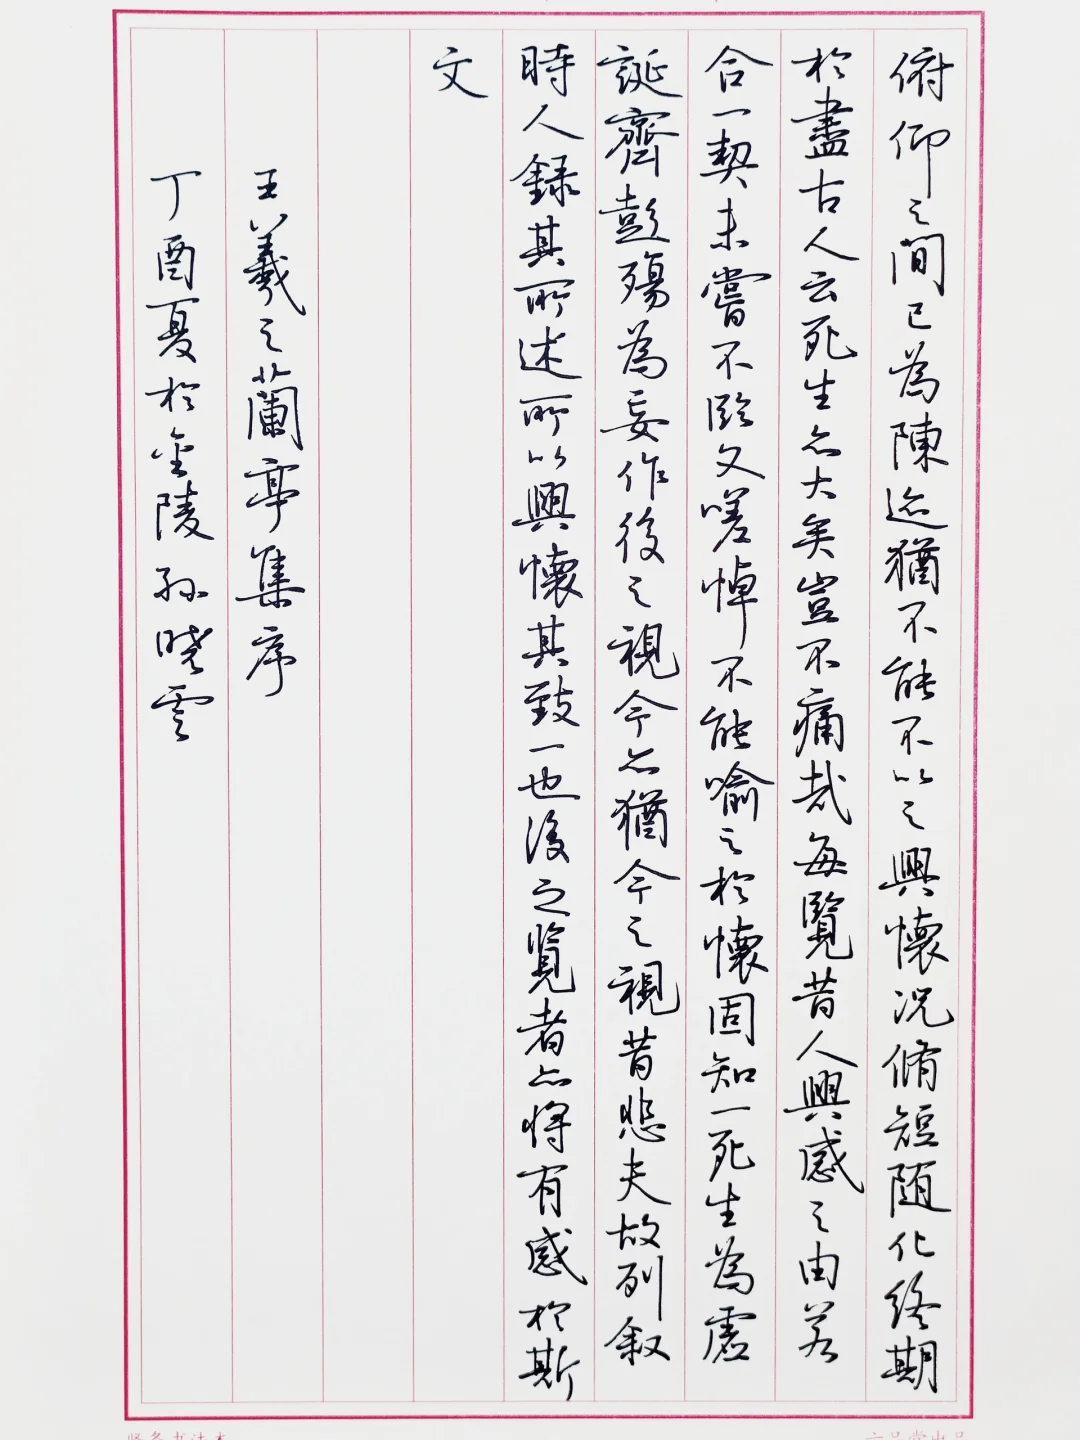 俯仰之間已為陳迹猶不能不以之興懷况脩短随化終期
於盡古人云死生亦大矣豈不痛哉每覽昔人興感之由若
合一契未嘗不臨文嗟悼不能喻之於懷固知一死生為虛
誕齊彭殤為妄作後之視今亦猶今之視昔悲夫故列叙
時人録其所述所以興懷其致一也後之覽者亦将有感於斯
文
王羲之蘭亭集序
丁酉夏於金陵孙晓雲